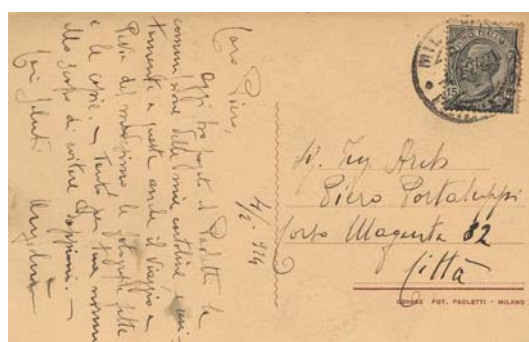 MIL
15
4/2. 924
Caro Piero,
Oggi ho fatto a Paoletti la
commissione delle mie cartoline, uni-
tamente a queste anche il viaggio a
del medesimo le fotografie fatte
e le copie. - Tanto per tua norma
allo scopo di evitare doppioni. -
Cari saluti
Sig. Ing. Arch.
Piero Portaluppi
Corso Magenta 32
Città
FOT. PAOLETTI - MILANO